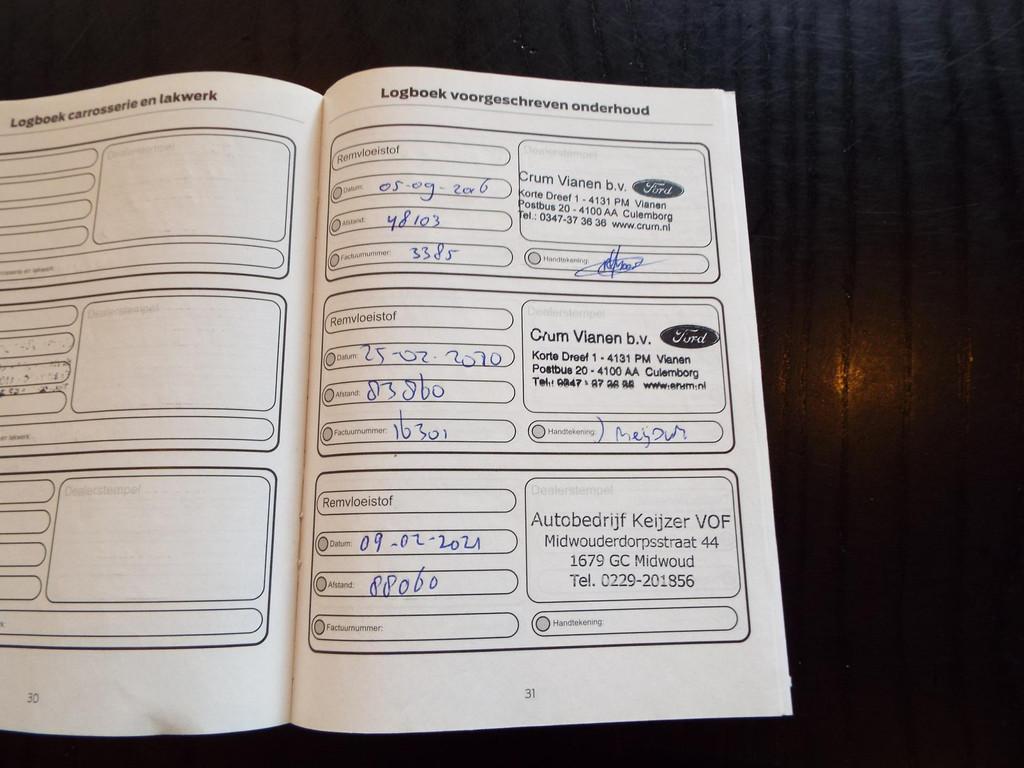 Logboek carrosserie en lakwerk
Dealerstempel
Dealerstempel
en lakwerk:
Dealerstempel
30
Logboek voorgeschreven onderhoud
Remvloeistof
Datum: 05-09-2016
Afstand: 48103
Factuurnummer: 3385
Dealerstempel
Crum Vianen b.v. Ford
Korte Dreef 1 - 4131 PM Vianen
Postbus 20 - 4100 AA Culemborg
Tel.: 0347-37 36 36 www.crum.nl
Handtekening:
Remvloeistof
Datum: 25-02-2020
Afstand: 83860
Factuurnummer: 16301
Dealerstempel
Crum Vianen b.v. Ford
Korte Dreef 1 - 4131 PM Vianen
Postbus 20 - 4100 AA Culemborg
Tel.: 0347 - 37 36 36 www.crum.nl
Handtekening:
Remvloeistof
Datum: 09-02-2021
Afstand: 88060
Factuurnummer:
Dealerstempel
Autobedrijf Keijzer VOF
Midwouderdorpsstraat 44
1679 GC Midwoud
Tel. 0229-201856
Handtekening:
31